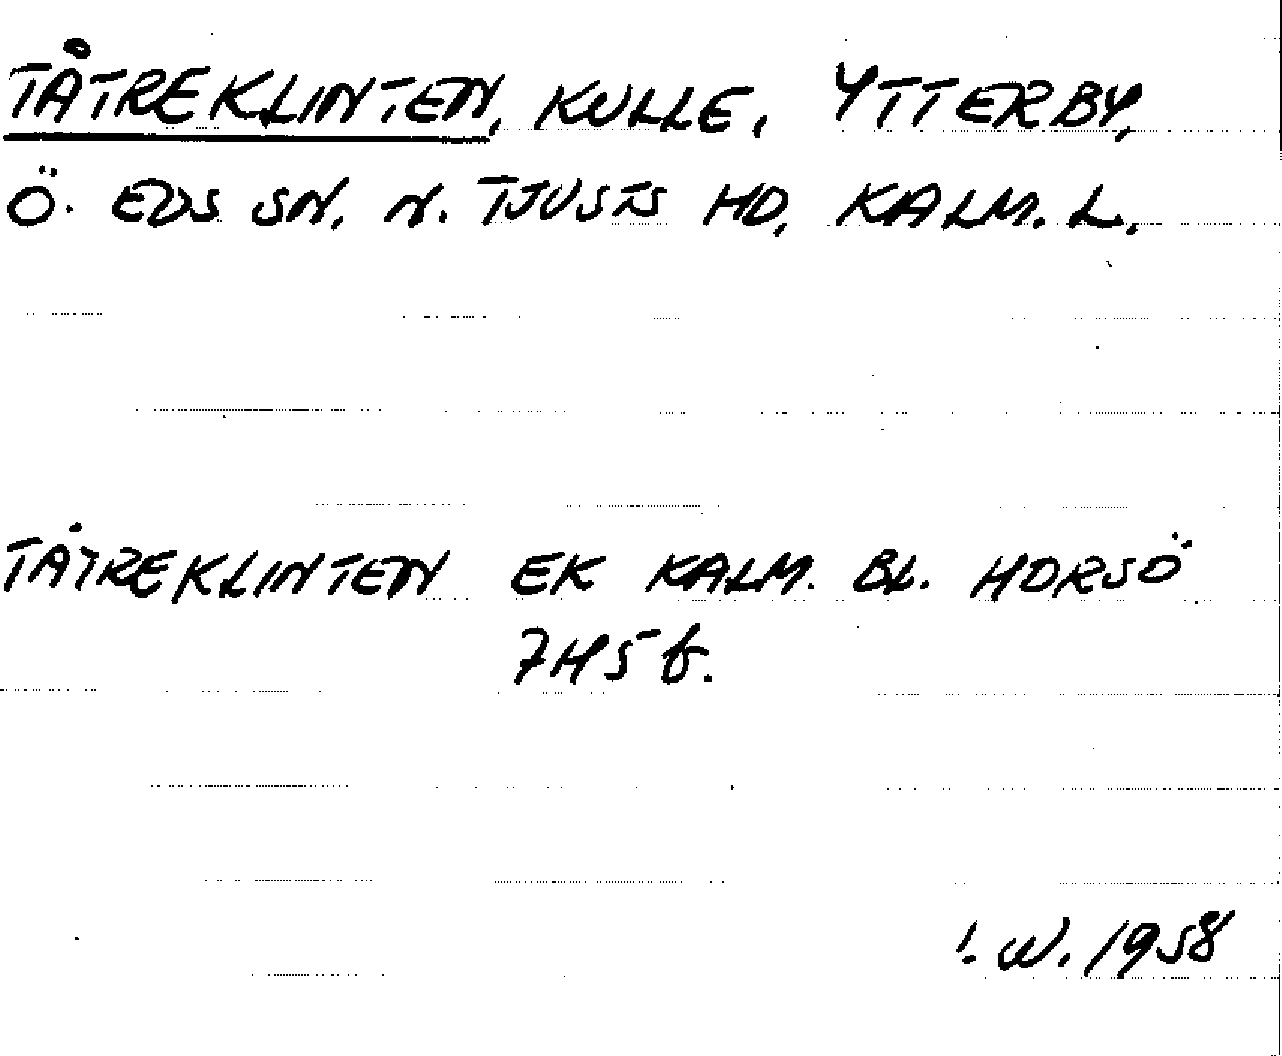 TÅTREKLINTEN, KULLE, YTTERBY,
Ö. EDS SN, N. TJUSTS HD, KALM. L,
TÅTREKLINTEN EK KALM. BL. HORSÖ
7H5f.
!. W. 1958